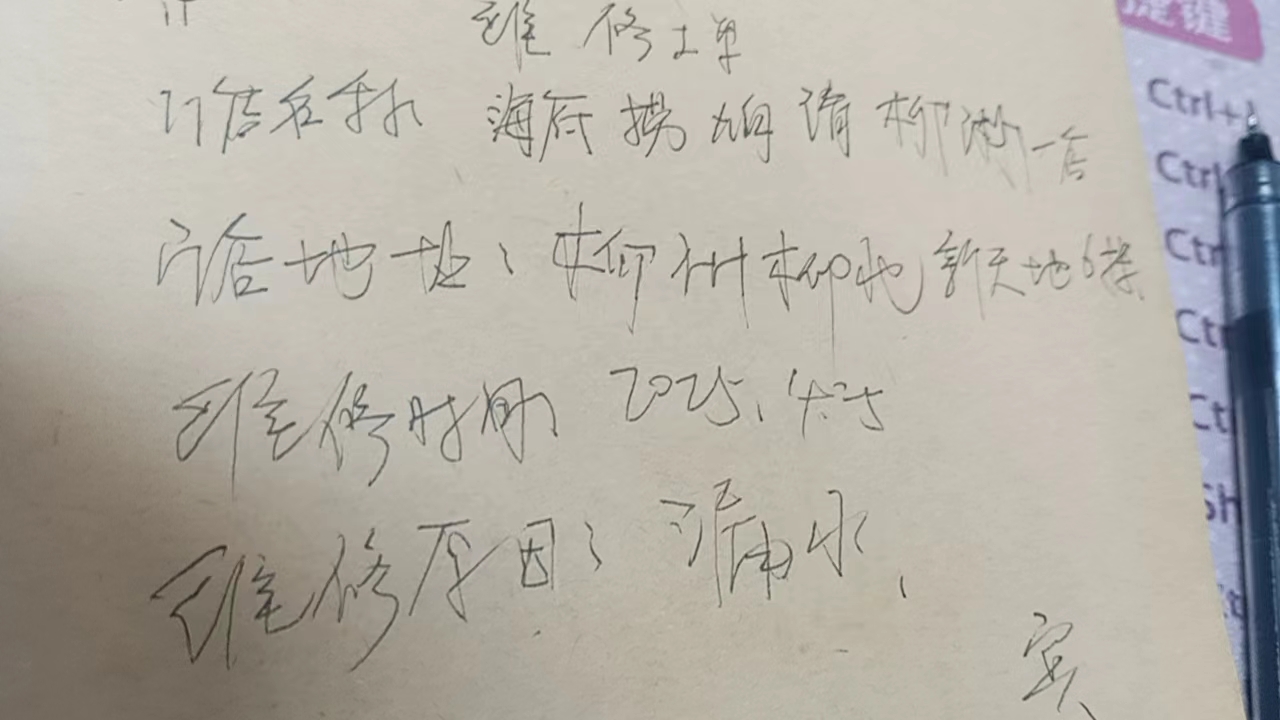 维修工单
门店名称 海底捞 请柳州一店
门店地址：柳州柳北新天地6楼
维修时间、2025.4.25
维修原因：漏水、
宾
捷键
Ctrl+
Ctrl
Ctr
Ct
Ct
Sh